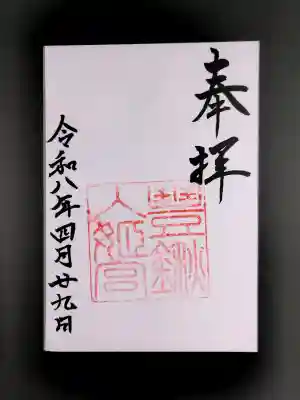 奉拝
豊鍬
大姫宮
令和八年四月廿九日